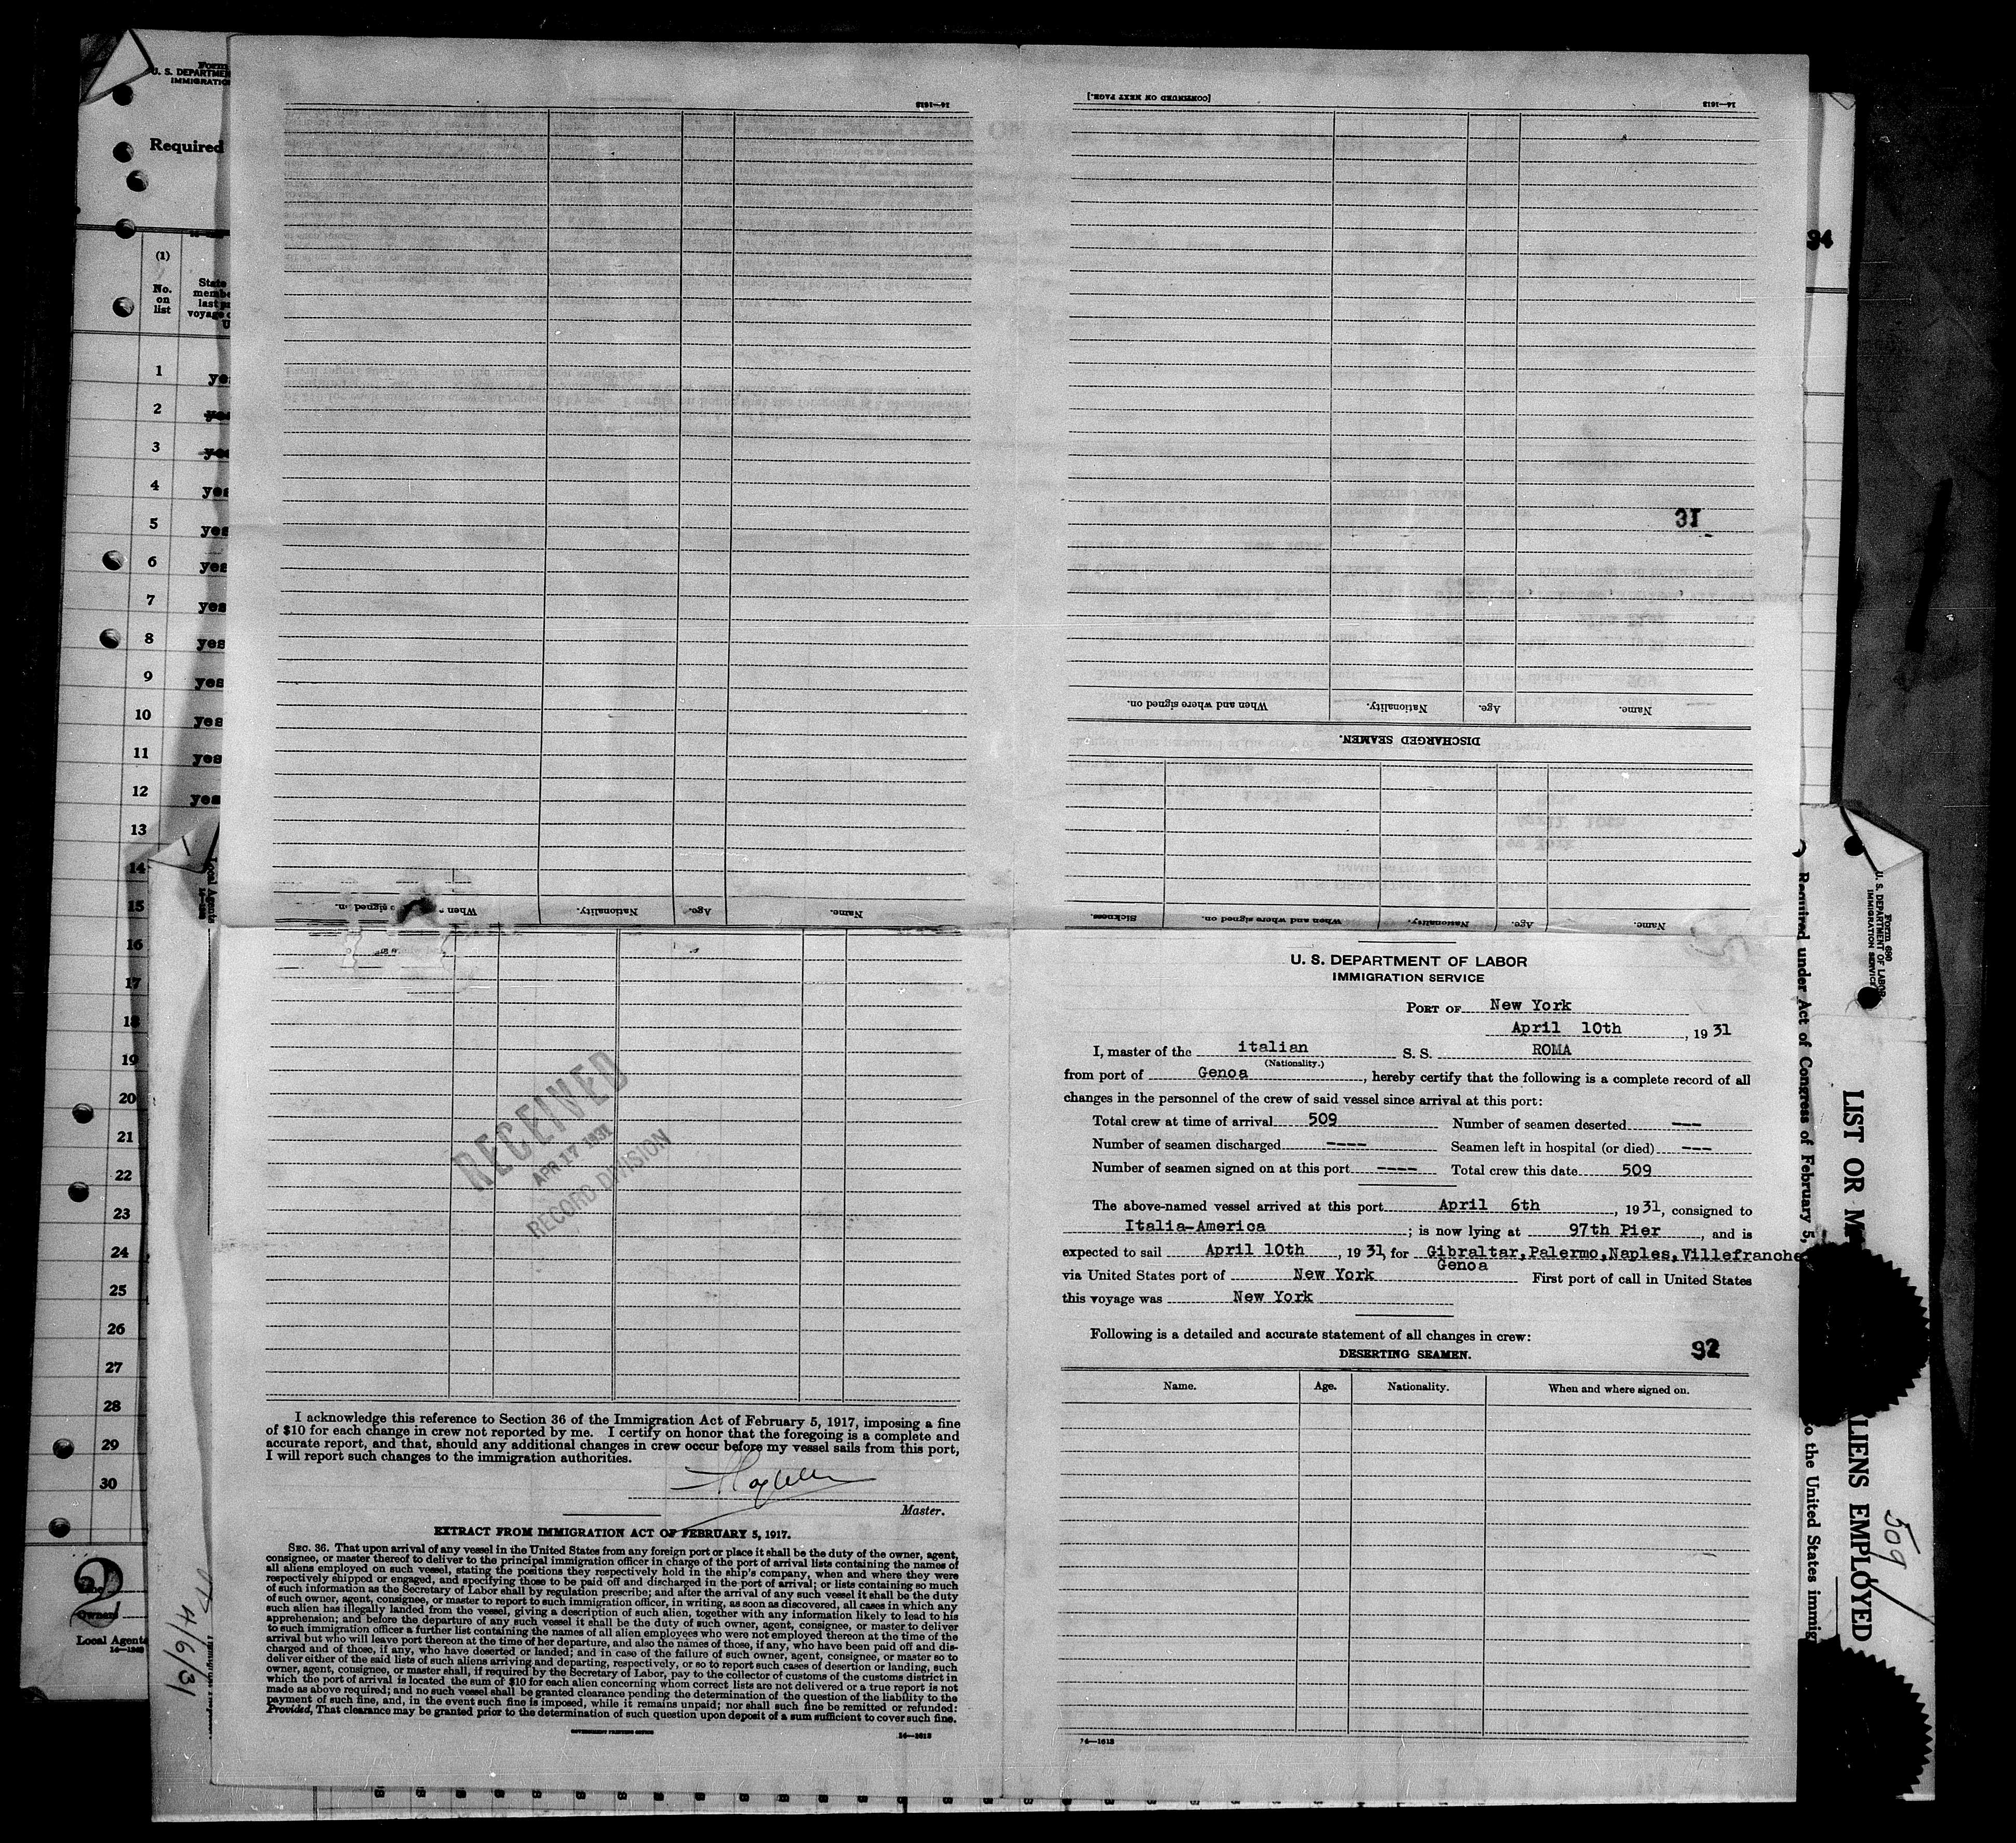 Form
U. S. DEPARTMEN
IMMIGRATIO
Required
(1)
No.
on
list
State
membe
last
voyage
1 yes
2 yes
3 yes
4 yes
5 yes
6 yes
7 yes
8 yes
9 yes
10 yes
11 yes
12 yes
13
14
15
16
17
18
19
20
21
22
23
24
25
26
27
28
29
30
2
Owners
Local Agents
14—1613
[CONTINUED ON NEXT PAGE.]
14—1613
94
31
Name. Age. Nationality. When and where signed on.
DISCHARGED SEAMEN.
Name. Age. Nationality. When and where signed on. Sickness.
Name. Age. Nationality. When signed on.
RECEIVED
APR 17 1931
RECORD DIVISION
I acknowledge this reference to Section 36 of the Immigration Act of February 5, 1917, imposing a fine
of $10 for each change in crew not reported by me. I certify on honor that the foregoing is a complete and
accurate report, and that, should any additional changes in crew occur before my vessel sails from this port,
I will report such changes to the immigration authorities.
Master.
EXTRACT FROM IMMIGRATION ACT OF FEBRUARY 5, 1917.
SEC. 36. That upon arrival of any vessel in the United States from any foreign port or place it shall be the duty of the owner, agent,
consignee, or master thereof to deliver to the principal immigration officer in charge of the port of arrival lists containing the names of
all aliens employed on such vessel, stating the positions they respectively hold in the ship's company, when and where they were
respectively shipped or engaged, and specifying those to be paid off and discharged in the port of arrival; or lists containing so much
of such information as the Secretary of Labor shall by regulation prescribe; and after the arrival of any such vessel it shall be the duty
of such owner, agent, consignee, or master to report to such immigration officer, in writing, as soon as discovered, all cases in which any
such alien has illegally landed from the vessel, giving a description of such alien, together with any information likely to lead to his
apprehension; and before the departure of any such vessel it shall be the duty of such owner, agent, consignee, or master to deliver
to such immigration officer a further list containing the names of all alien employees who were not employed thereon at the time of the
arrival but who will leave port thereon at the time of her departure, and also the names of those, if any, who have been paid off and dis-
charged and of those, if any, who have deserted or landed; and in case of the failure of such owner, agent, consignee, or master so to
deliver either of the said lists of such aliens arriving and departing, respectively, or so to report such cases of desertion or landing, such
owner, agent, consignee, or master shall, if required by the Secretary of Labor, pay to the collector of customs of the customs district in
which the port of arrival is located the sum of $10 for each alien concerning whom correct lists are not delivered or a true report is not
made as above required; and no such vessel shall be granted clearance pending the determination of the question of the liability to the
payment of such fine, and, in the event such fine is imposed, while it remains unpaid; nor shall such fine be remitted or refunded:
Provided, That clearance may be granted prior to the determination of such question upon deposit of a sum sufficient to cover such fine.
GOVERNMENT PRINTING OFFICE
14—1613
4/6/31
U. S. DEPARTMENT OF LABOR
IMMIGRATION SERVICE
PORT OF New York
April 10th, 1931
I, master of the italian S. S. ROMA
(Nationality.)
from port of Genoa, hereby certify that the following is a complete record of all
changes in the personnel of the crew of said vessel since arrival at this port:
Total crew at time of arrival 509 Number of seamen deserted ---
Number of seamen discharged ---- Seamen left in hospital (or died) ---
Number of seamen signed on at this port ---- Total crew this date 509
The above-named vessel arrived at this port April 6th, 1931, consigned to
Italia-America; is now lying at 97th Pier, and is
expected to sail April 10th, 1931, for Gibraltar,Palermo,Naples,Villefranche
Genoa
via United States port of New York First port of call in United States
this voyage was New York
Following is a detailed and accurate statement of all changes in crew:
92
DESERTING SEAMEN.
Name. Age. Nationality. When and where signed on.
14—1613
Form 680
U. S. DEPARTMENT OF LABOR
IMMIGRATION SERVICE
LIST OR M
LIENS EMPLOYED
Required under Act of Congress of February 5,
o the United States immig
509